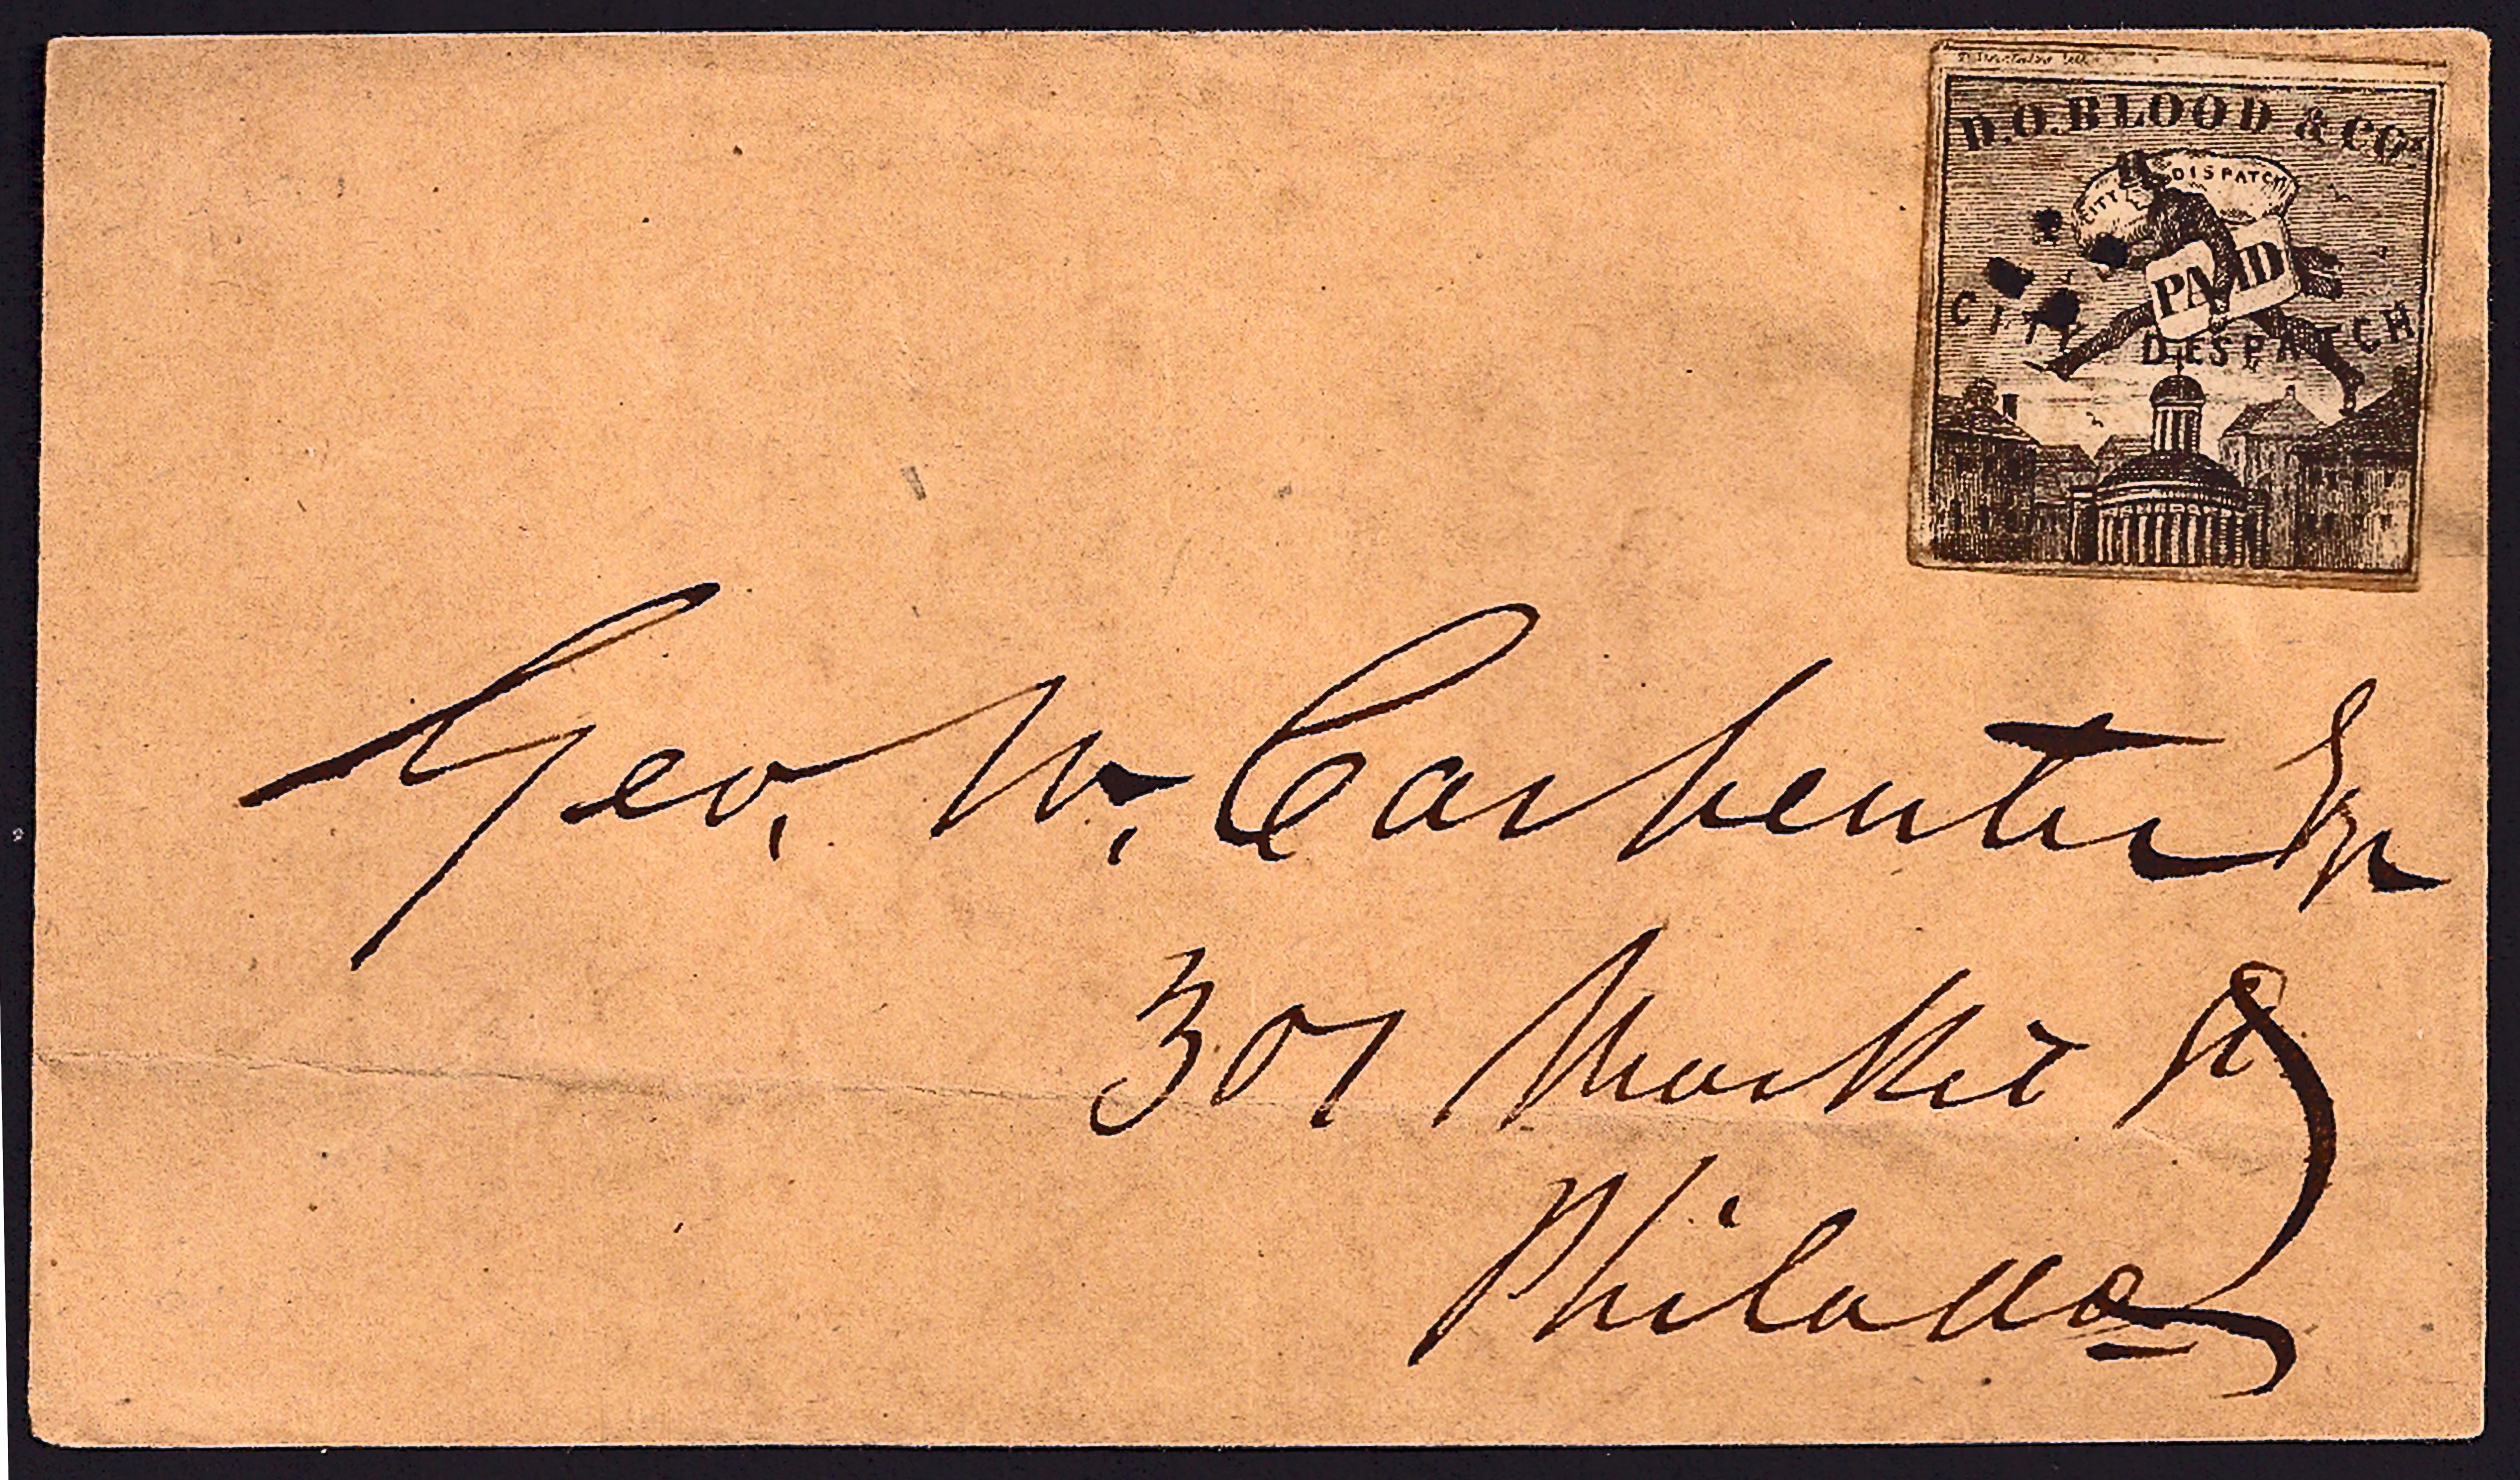 D.O.BLOOD & CO'S
CITY DISPATCH
PAID
CITY DESPATCH
Geo. W. Carpenter Esq
301 Market St
Philada